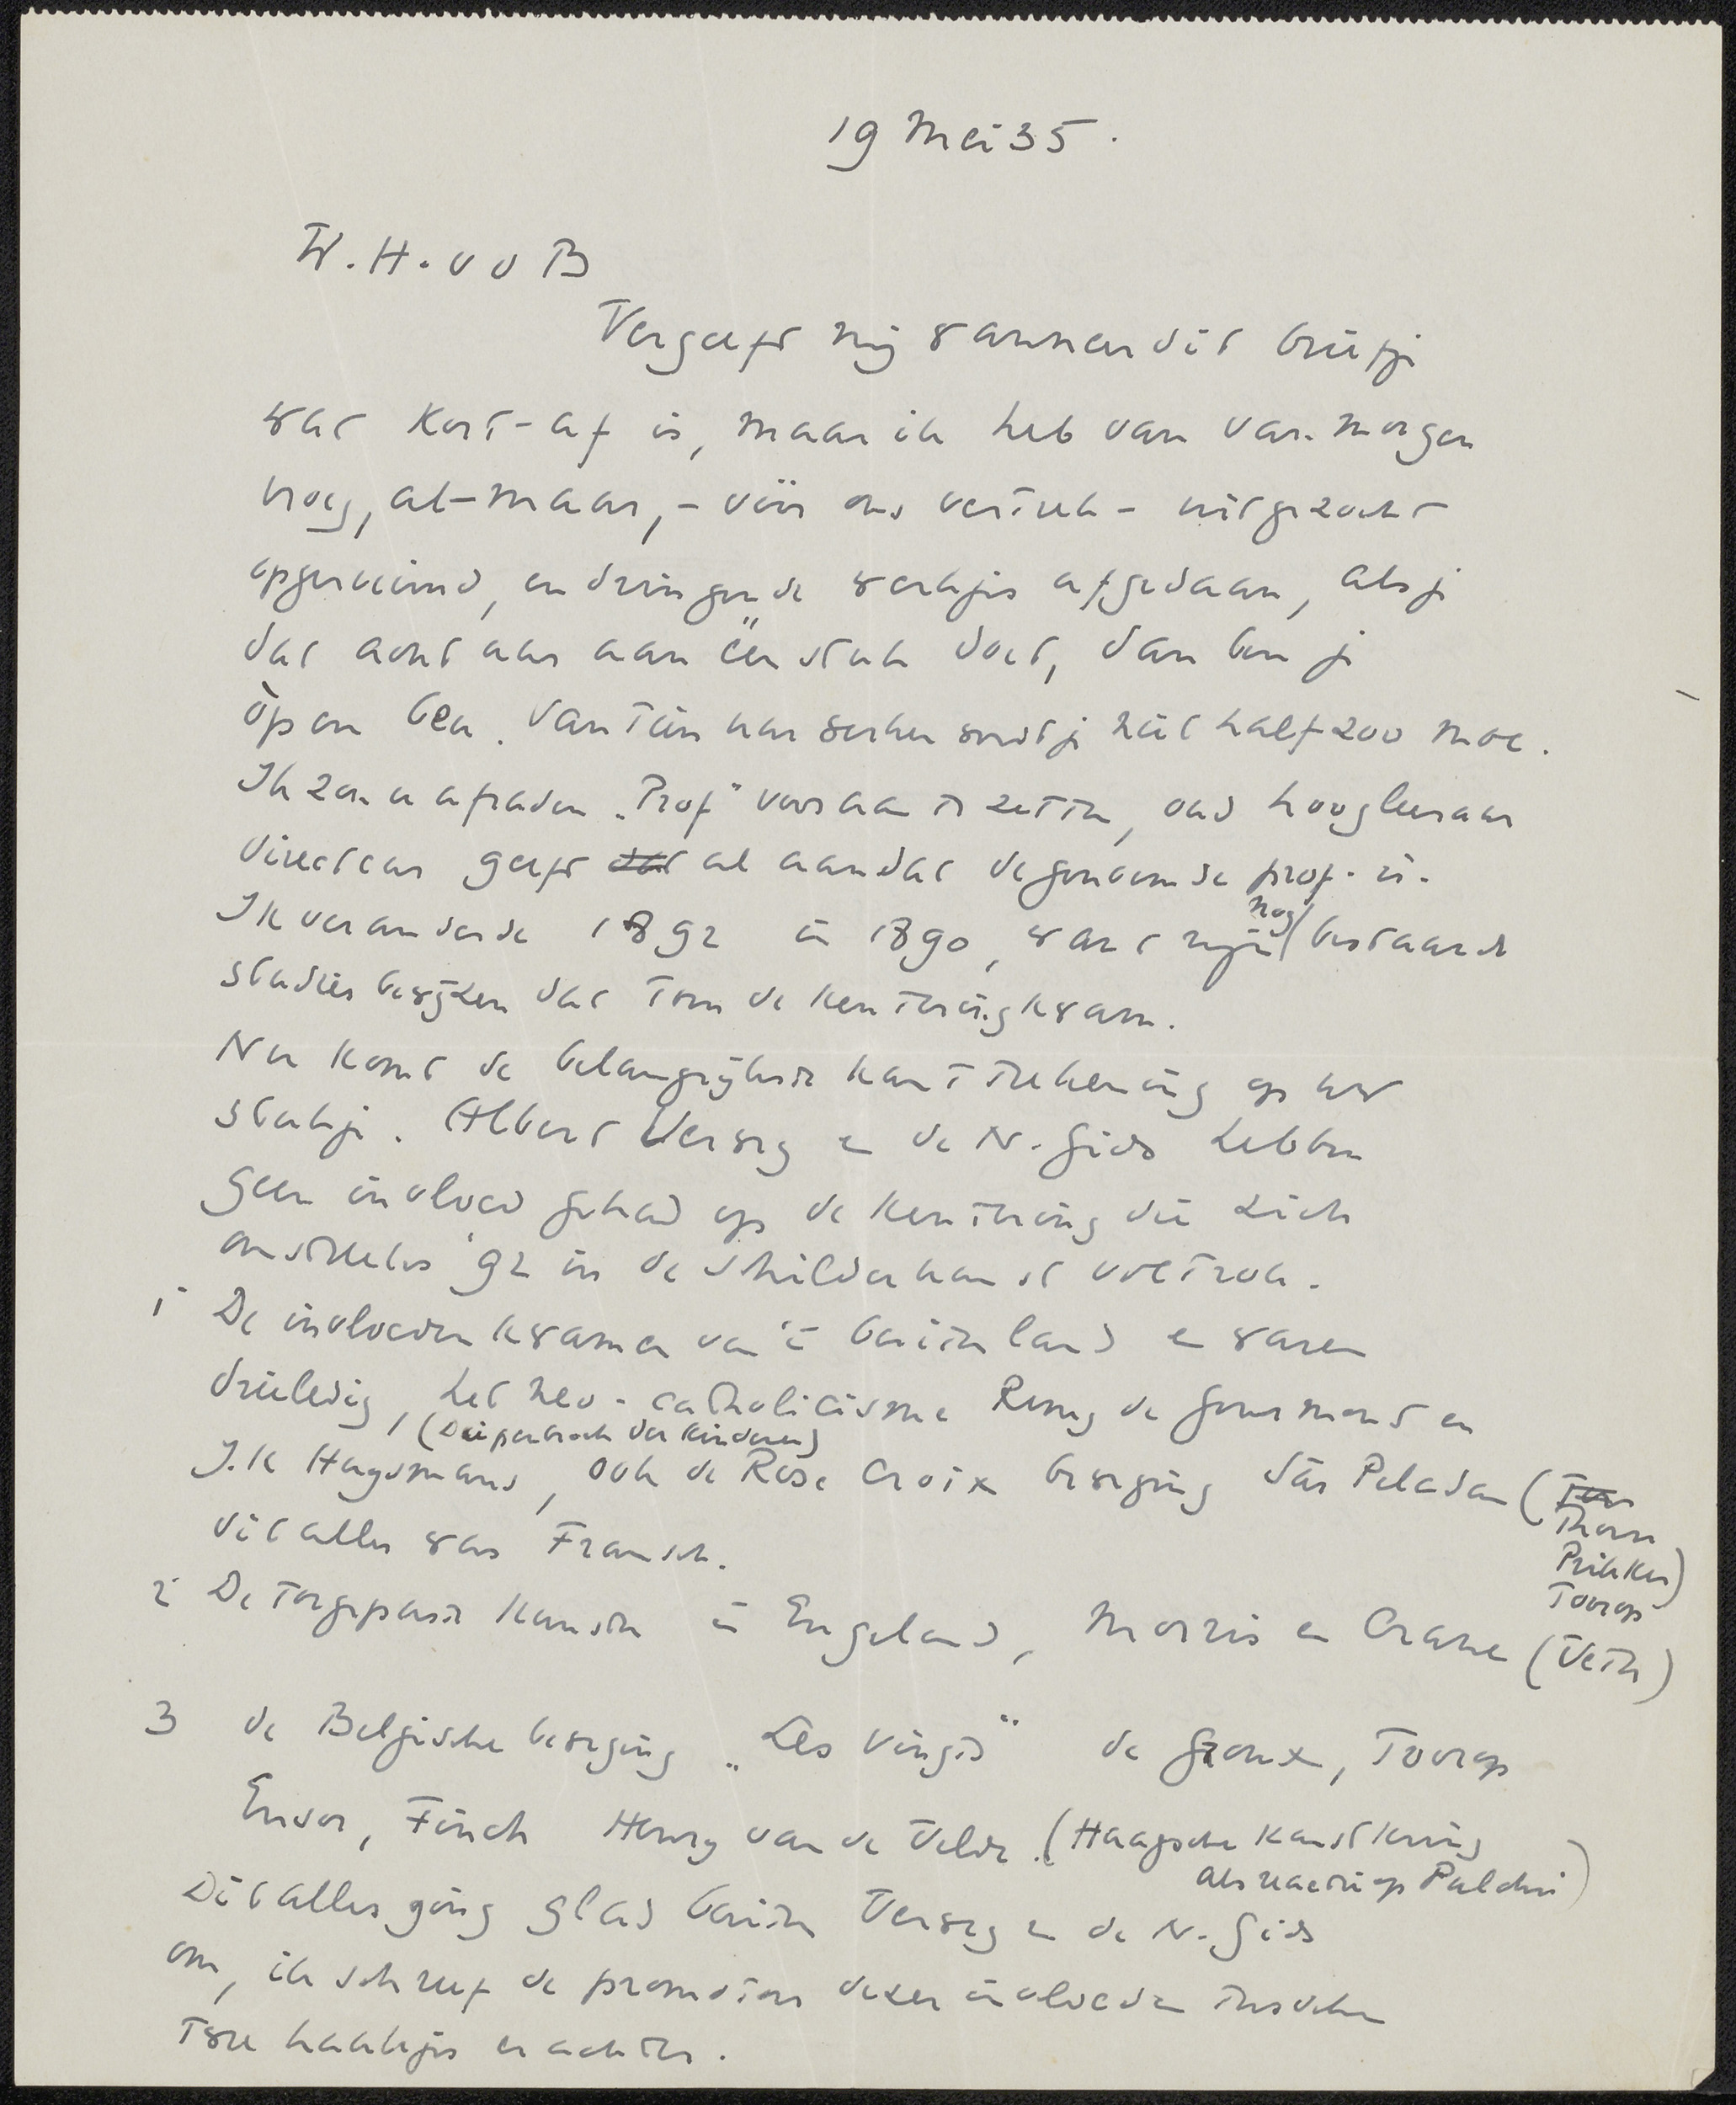 19 Mei 35.
W. H. v d B
Vergeeft mij wanneer dit briefje
wat kort-af is, maar ik heb van van morgen
vroeg, al-maar, - vóór ons vertrek - uitgezocht
opgeruimd, en dringende werkjes afgedaan, als je
dat acht uur aan één stuk doet, dan ben je
óp en bèu. Van tien uur werken wordt je niet half zoo moe.
Ik zou u afraden „Prof" vooraan te zetten, oud hoogleeraar
directeur geeft dat al aan dat de genoemde prof. is.
Ik veranderde 1892 in 1890, want mijn nog bestaande
studies bewijzen dat toen de kenthering kwam.
Nu komt de belangrijkste kantteekening op uw
stukje. Albert Verwey en de N. Gids hebben
geen invloed gehad op de kenthering die zich
omstreeks '92 in de schilderkunst voltrok.
1° De invloeden kwamen van 't buitenland en waren
drieledig, het neo-catholicisme Remy de Gourmont en
J.K Huysmans, (Diepenbrock der Kinderen) ook de Rose Croix beweging Sâr Peladan (Tho
Thorn
Prikker)
Toorop
dit alles was Fransch.
2 De toegepaste kunsten in Engeland, Morris en Crane (Veth)
3 de Belgische beweging „Les Vingts" de Groux, Toorop
Ensor, Finch Henry van de Velde (Haagsche Kunstkring
als reactie op Pulchri)
Dit alles ging glad buiten Verwey en de N. Gids
om, ik schreef de promotors dezer invloeden tusschen
twee haakjes er achter.